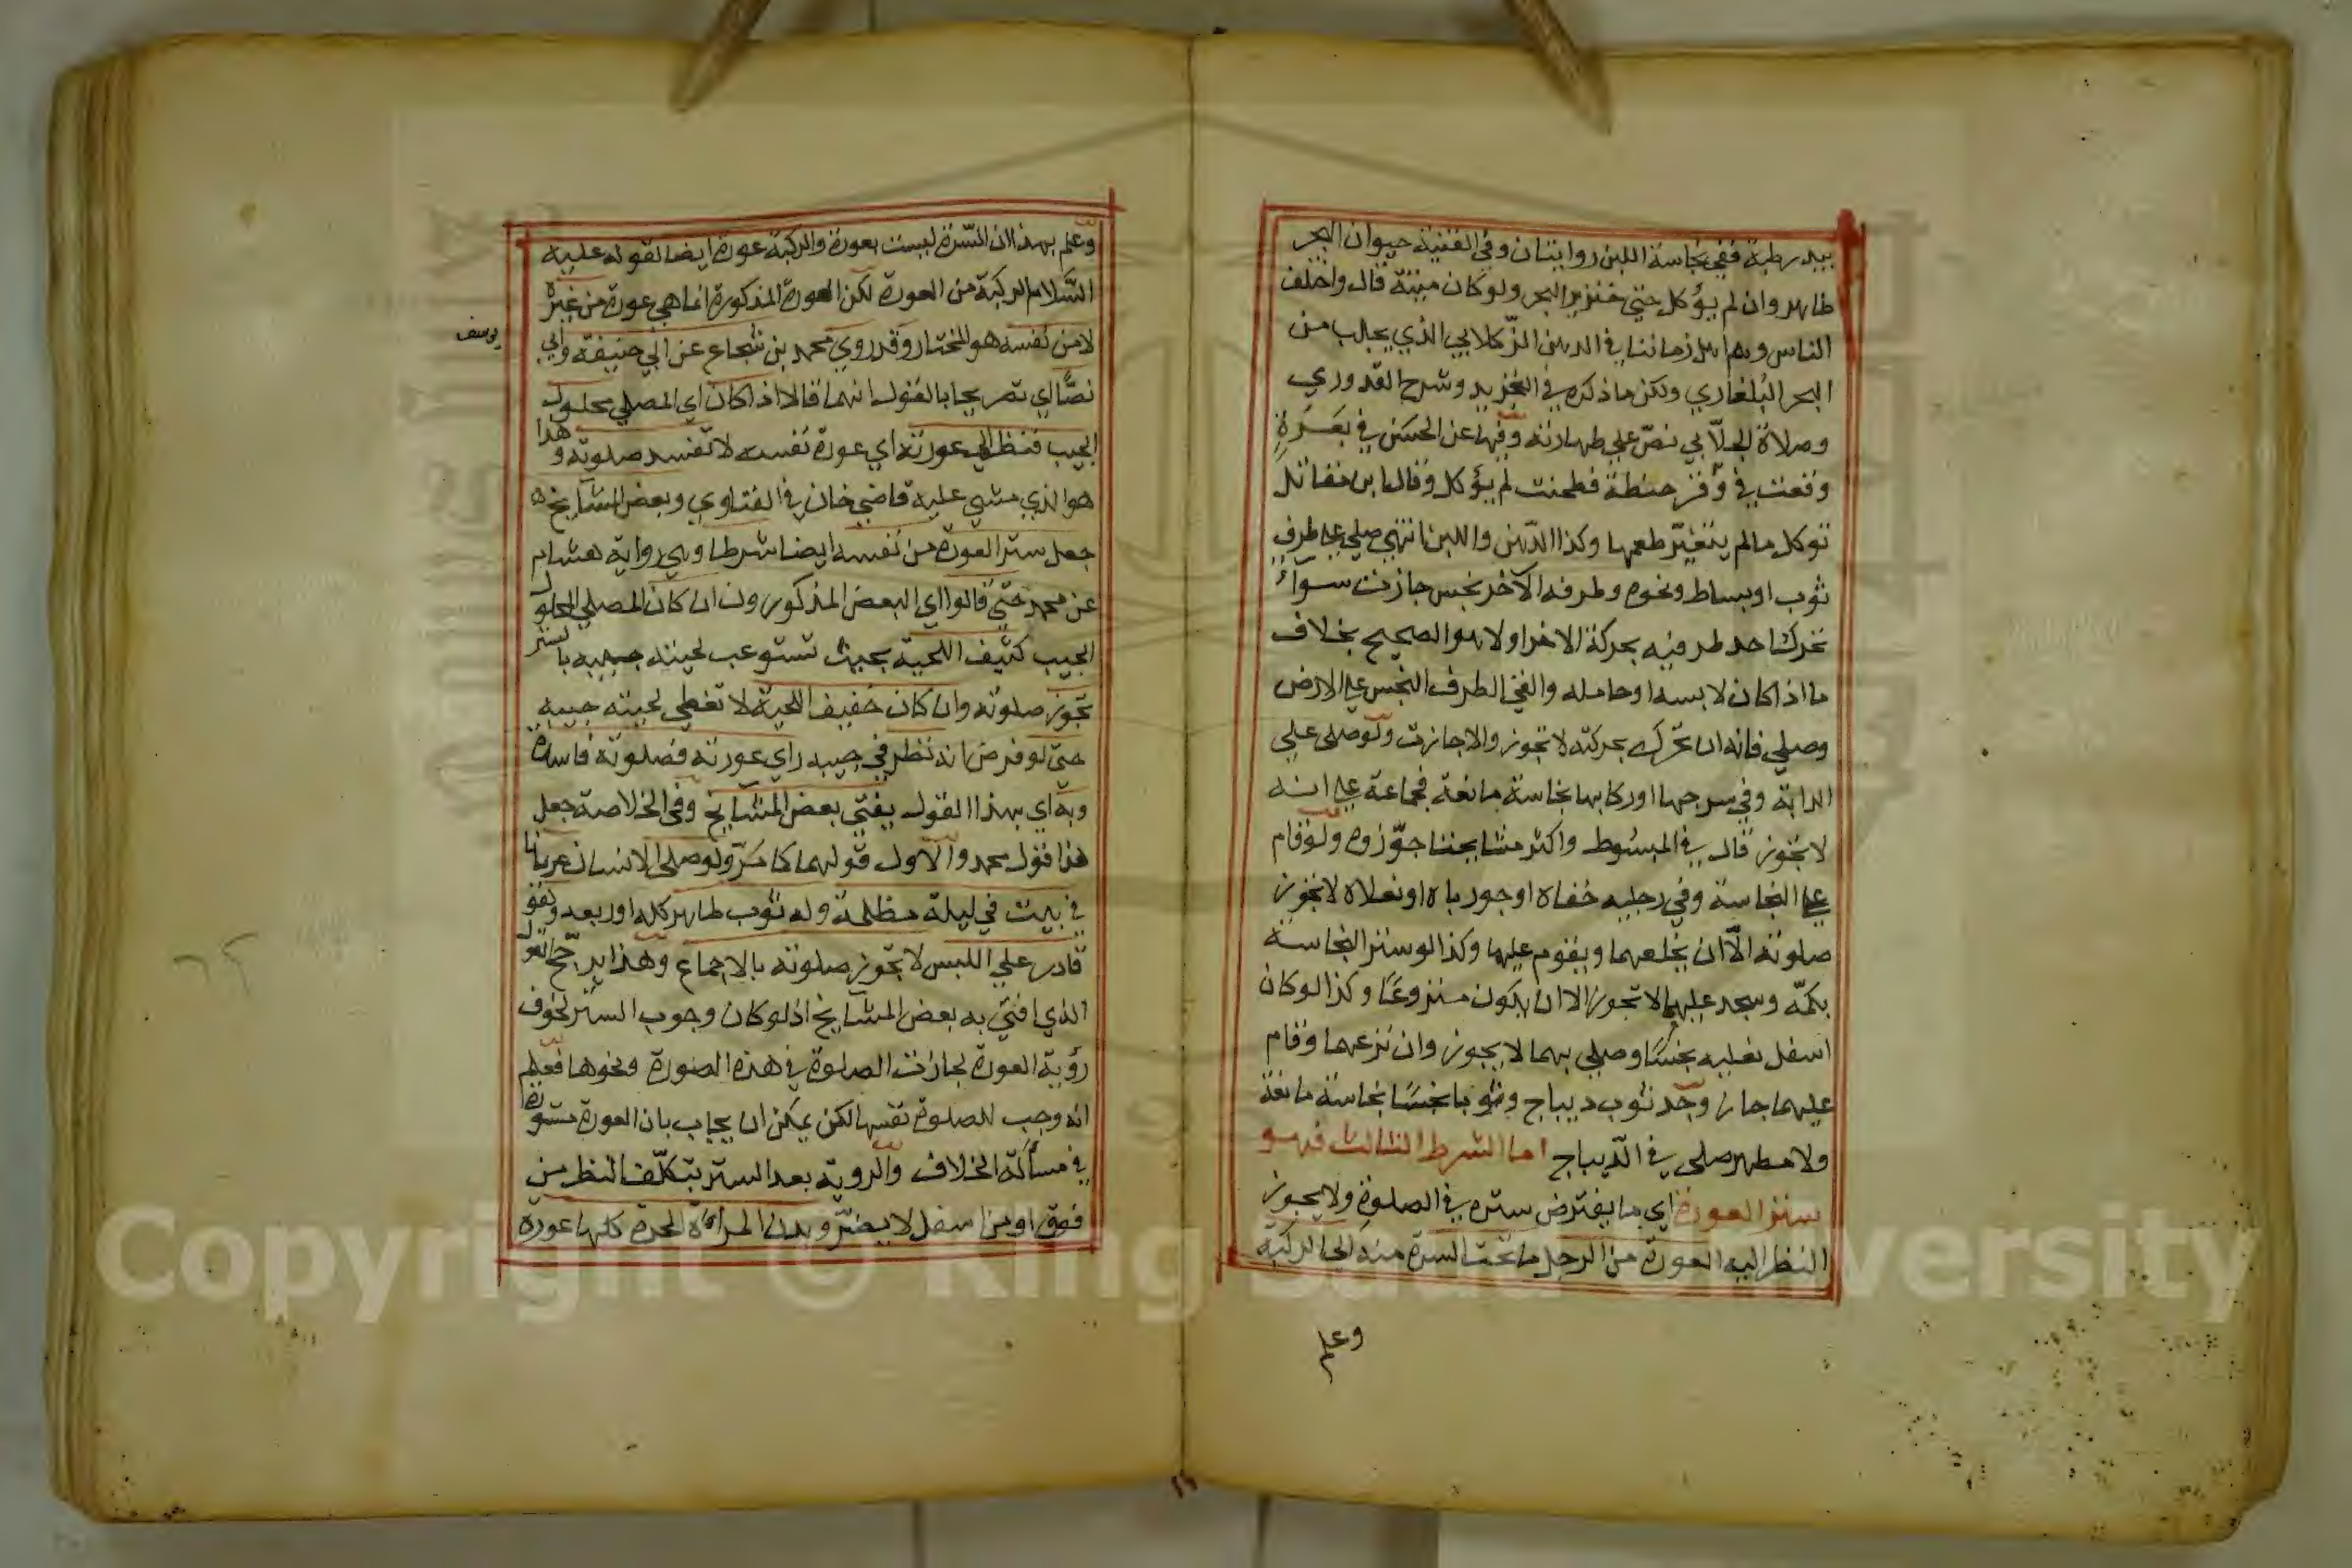 بيد رطبة ففي نجاسة اللبن روايتان وفي القنية حيوان البحر
طاهر وان لم يؤكل حتى خنزير البحر ولو كان ميتة قال واختلف
الناس وبهم اهل زماننا في الدهن الزكلابي الذي يجلب من
البحر البلغاري ولكن ما ذكره في التجريد وشرح القدوري
وصلاة الجلابي نص علي طهارته وفيها عن الحسن في بعرة
وقعت في وقر حنطة فطحنت لم يؤكل وقال ابن مقاتل
توكل ما لم يتغير طعمها وكذا الدهن واللبن انتهي صلي علي طرف
ثوب او بساط ونحوه وطرفه الآخر نجس جازت سواء
تحرك احد طرفيه بحركة الاخر او لا هو الصحيح بخلاف
ما اذا كان لابسه او حامله والقي الطرف النجس علي الارض
وصلي فانه ان تحرك بحركته لا تجوز والا جازت ولو صلي علي
الدابة وفي سرجها او ركابها نجاسة مانعة فجماعة علي انه
لا تجوز قال في المبسوط واكثر مشايخنا جوزوه ولو قام
علي النجاسة وفي رجليه خفاه او جورباه او نعلاه لا تجوز
صلوته الا ان يخلعهما ويقوم عليهما وكذا لو ستر النجاسة
بكمه وسجد عليهما لا تجوز الا ان يكون منزوعا وكذا لو كان
اسفل نعليه نجسا وصلي بهما لا يجوز وان نزعهما وقام
عليهما جاز وجد ثوب ديباج وثوبا نجسا نجاسة مانعة
ولا مطهر صلي في الديباج اما الشرط الثالث فهو
ستر العورة اي ما يفترض ستره في الصلوة ولا يجوز
النظر اليه العورة من الرجل ما تحت السرة منه الي الركبة
وعلم
وعلم بهذا ان السرة ليست بعورة والركبة عورة ايضا لقوله عليه
السلام الركبة من العورة لكن العورة المذكورة انما هي عورة من غيره
لا من نفسه هو المختار وقد روي محمد بن شجاع عن ابي حنيفة وابي
يوسف
نصا اي تصريحا بالقول انهما قالا اذا كان اي المصلي محلول
الجيب فنظر الي عورته اي عورة نفسه لا تفسد صلوته وهذا
هو الذي مشي عليه قاضي خان في الفتاوي وبعض المشايخ
جعل ستر العورة من نفسه ايضا شرطا وهي رواية هشام
عن محمد حتي قالوا اي البعض المذكورون ان كان المصلي المحلول
الجيب كثيف اللحية بحيث تستوعب لحيته جيبه بالستر
تجوز صلوته وان كان خفيف اللحية لا تغطي لحيته جيبه
حتي لو فرض انه نظر في جيبه راي عورته فصلوته فاسدة
وبه اي بهذا القول يفتي بعض المشايخ وفي الخلاصة جعل
هذا قول محمد والاول قولهما كما مر ولو صلي الانسان عريانا
في بيت في ليلة مظلمة وله ثوب طاهر كله او ربعه وهو
قادر علي اللبس لا تجوز صلوته بالاجماع وهذا يرجح القول
الذي افتي به بعض المشايخ اذ لو كان وجوب الستر لخوف
رؤية العورة لجازت الصلوة في هذه الصورة ونحوها فعلم
انه وجب للصلوة نفسها لكن يمكن ان يجاب بان العورة مستورة
في مسألة الخلاف والروية بعد الستر بتكلف النظر من
فوق او من اسفل لا يضر وبدن المرأة الحرة كلها عورة
Copyright © King Saud University